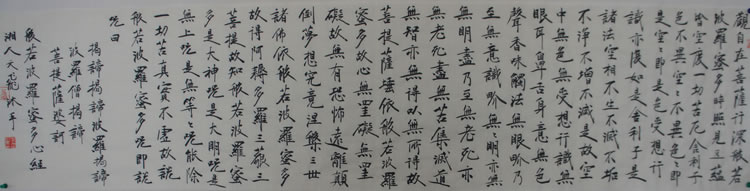 觀自在菩薩行深般若
波羅蜜多時照見五蘊
皆空度一切苦厄舍利子
色不異空々不異色色即
是空々即是色受想行
識亦復如是舍利子是
諸法空相不生不滅不垢
不淨不增不減是故空
中無色無受想行識無
眼耳鼻舌身意無色
聲香味觸法無眼界乃
至無意識界無無明亦
無無明盡乃至無老死亦
無老死盡無苦集滅道
無智亦無得以無所得故
菩提薩埵依般若波羅
蜜多故心無罣礙無罣
礙故無有恐怖遠離顛
倒夢想究竟涅槃三世
諸佛依般若波羅蜜多
故得阿耨多羅三藐三
菩提故知般若波羅蜜
多是大神咒是大明咒是
無上咒是無等々咒能除
一切苦真實不虛故說
般若波羅蜜多咒即說
咒曰
揭諦揭諦波羅揭諦
波羅僧揭諦
菩提薩婆訶
般若波羅蜜多心經
湘人天龍沐手